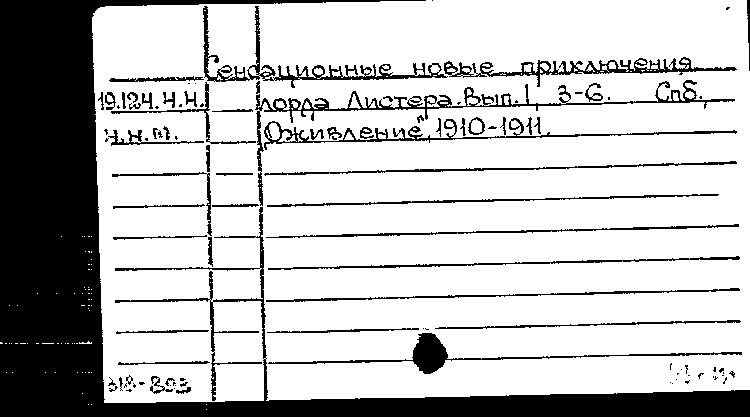 Сенсационные новые приключения
19.124.4.4. лорда Листера. Вып. 1, 3-6. Спб.,
ч.н.т. "Оживление", 1910-1911.
318-893